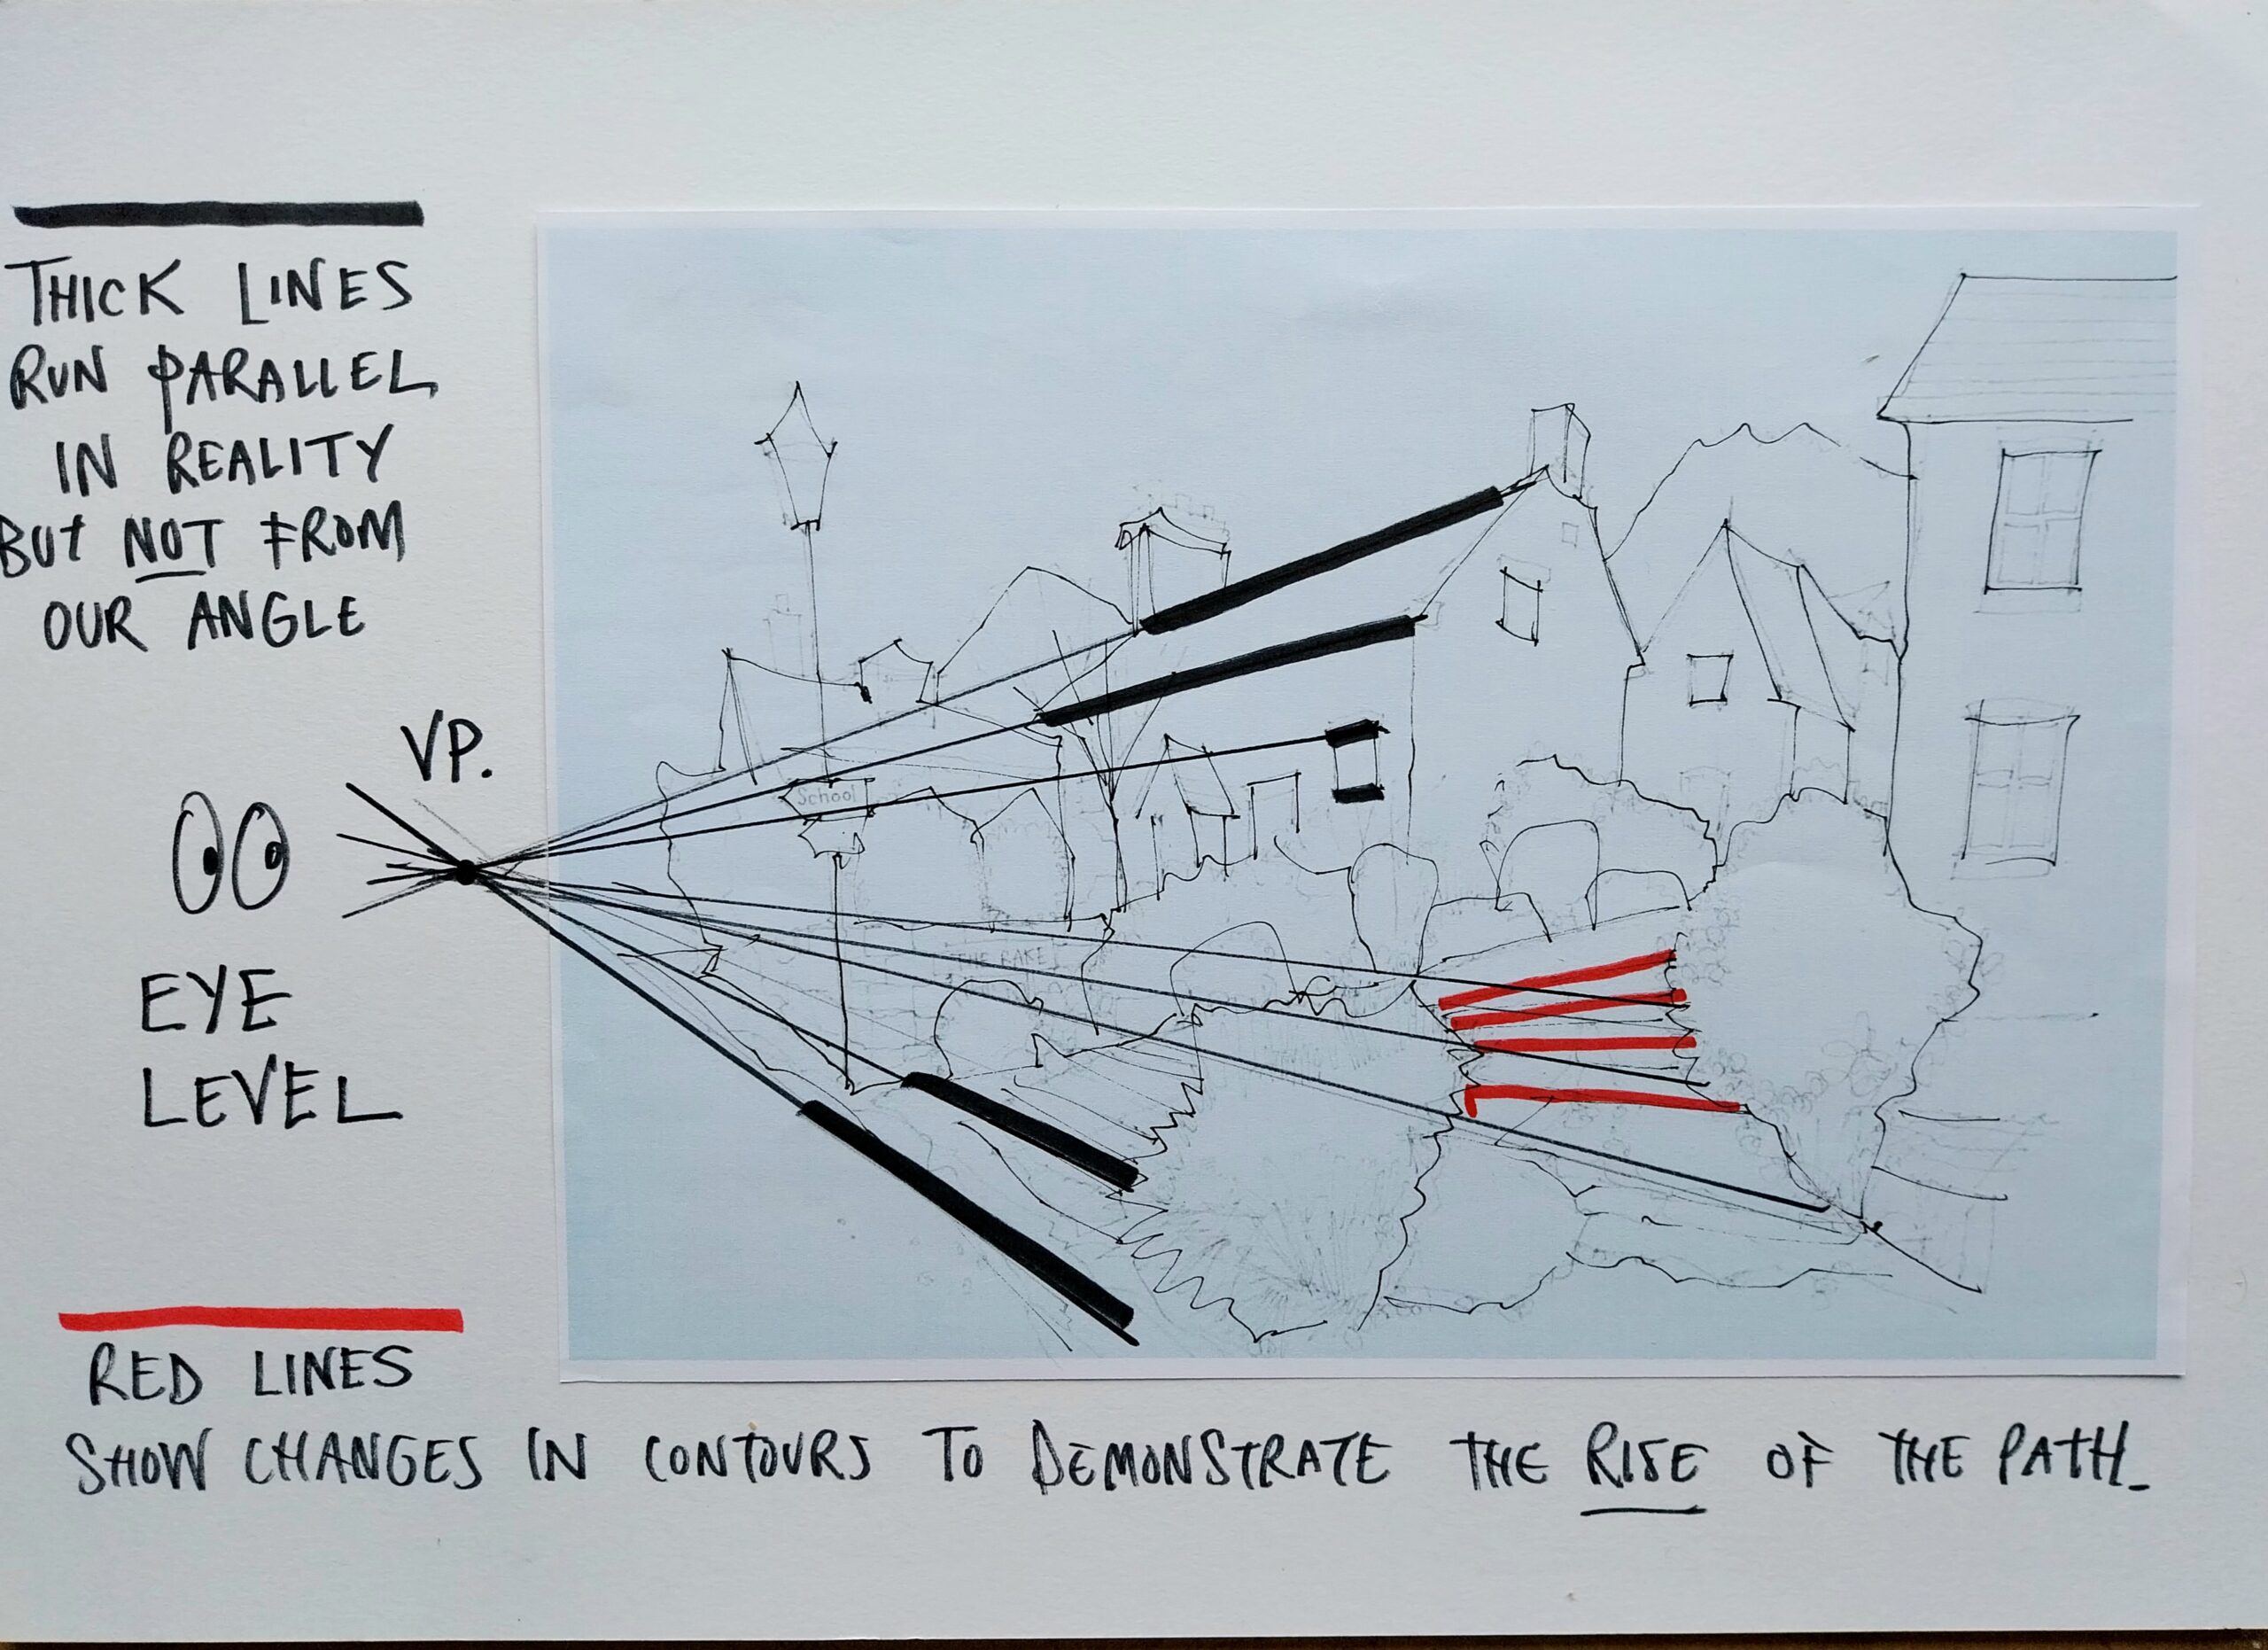 THICK LINES
RUN PARALLEL
IN REALITY
BUT NOT FROM
OUR ANGLE
VP.
EYE
LEVEL
School
THE RAKE
RED LINES
SHOW CHANGES IN CONTOURS TO DEMONSTRATE THE RISE OF THE PATH.